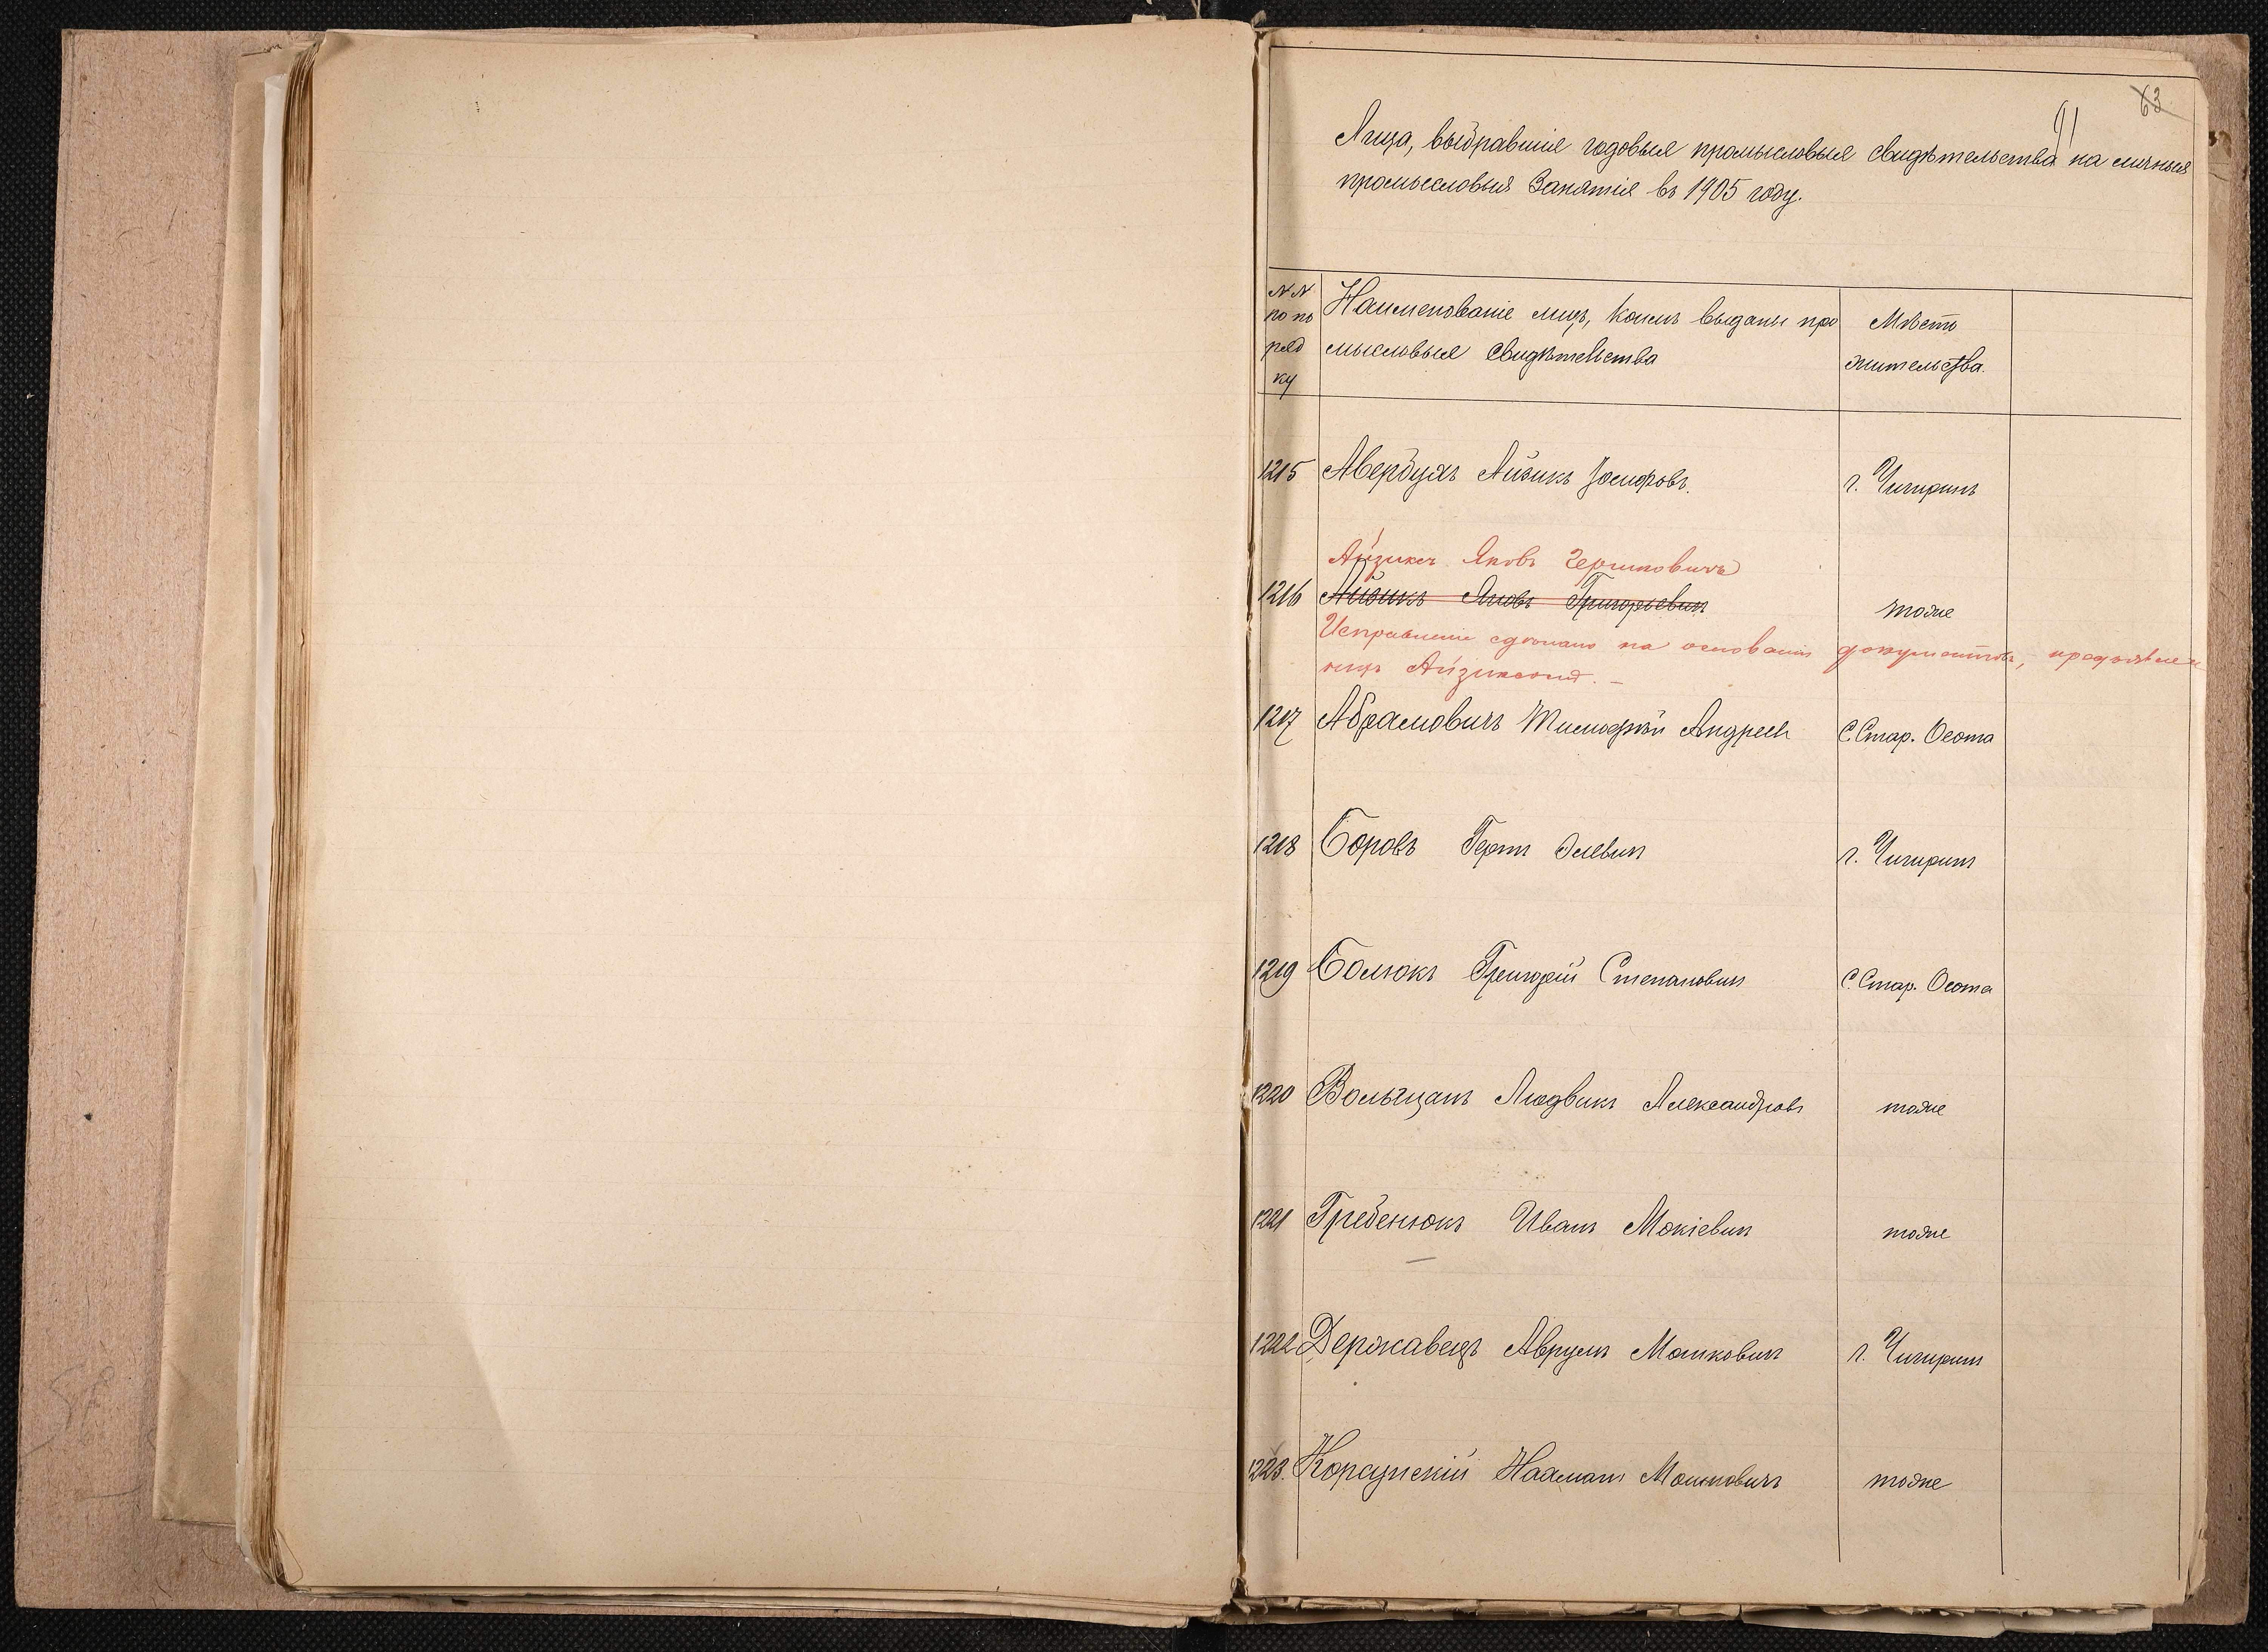 63
91
Лица, выбравшіе годовые промысловые свидѣтельства на личныя
промысловыя занятія въ 1905 году.
№№
по по
ряд
ку
Наименованіе лицъ, коимъ выданы про
мысловые свидѣтельства
Мѣсто
жительства.
1215 Авербухъ Айзикъ Іосифовъ. г. Чигиринъ
Айзикъ Яковъ Гершковичъ
1216 Айзикъ Яковъ Григорьевичъ тоже
Исправленіе сдѣлано на основаніи документовъ,
1217 Абрамовичъ Тимофѣй Андреев С. Стар. Осота
1218 Боровъ Гершъ Элевич г. Чигиринъ
1219 Болюкъ Григорій Степанович С. Стар. Осота
1220 Вольгцанъ Людвикъ Александровъ тоже
1221 Гребенюкъ Иванъ Мокіевич тоже
1222 Державецъ Аврумъ Мошкович г. Чигиринъ
1223. Корсунскій Нахманъ Мошковичъ тоже